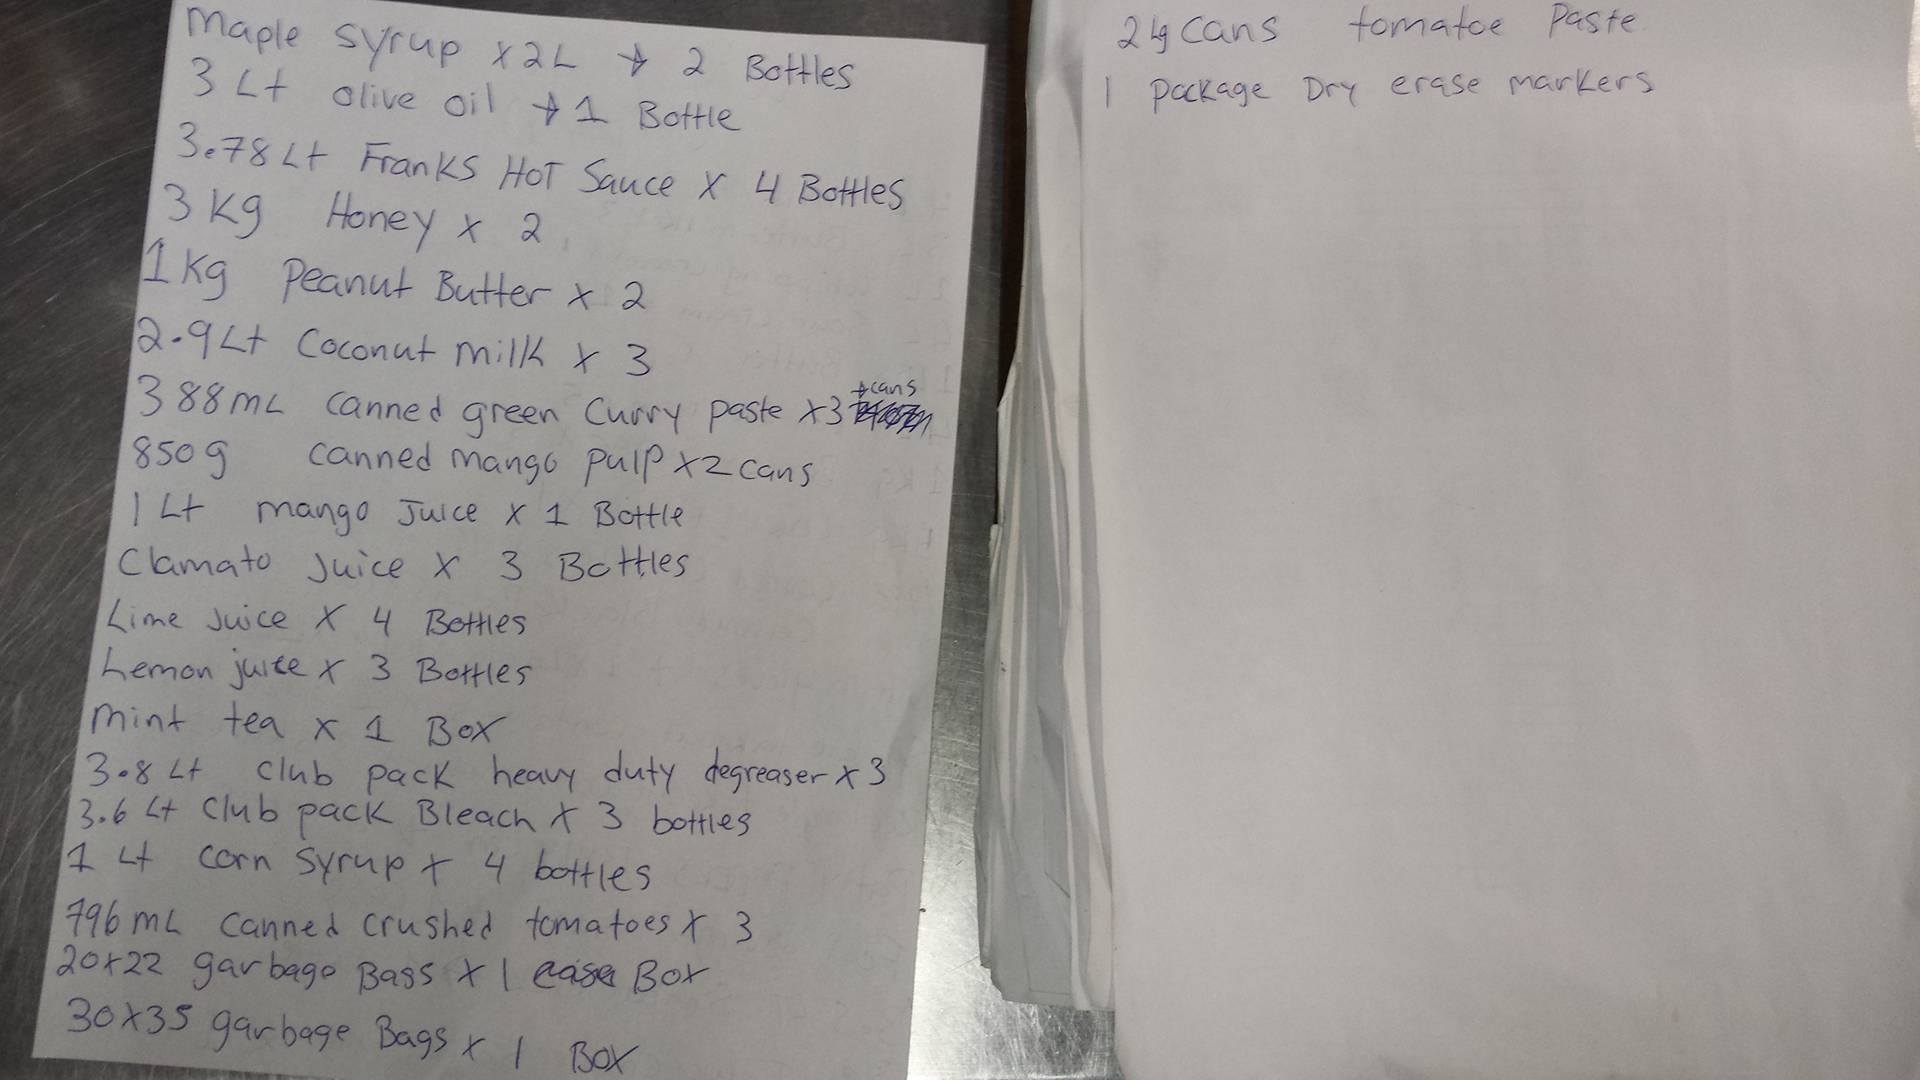 Maple Syrup x 2L → 2 Bottles
3 Lt olive oil → 1 Bottle
3.78 Lt Franks Hot Sauce x 4 Bottles
3 Kg Honey x 2
1 Kg Peanut Butter x 2
2.9 Lt Coconut milk x 3
388mL canned green Curry paste x3 → cans
850g canned mango pulp x 2 cans
1 Lt mango Juice x 1 Bottle
Clamato Juice x 3 Bottles
Lime Juice x 4 Bottles
Lemon juice x 3 Bottles
mint tea x 1 Box
3.8 Lt club pack heavy duty degreaser x 3
3.6 Lt Club pack Bleach x 3 bottles
1 Lt corn syrup x 4 bottles
796 mL canned crushed tomatoes x 3
20x22 garbage Bags x 1 case Box
30x35 garbage Bags x 1 Box
2 cans tomatoe Paste
1 package Dry erase markers